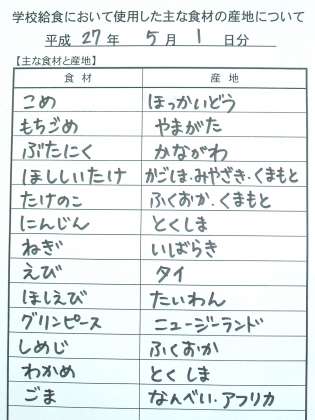 学校給食において使用した主な食材の産地について
平成 27 年 5 月 1 日分
【主な食材と産地】
食材 産地
こめ ほっかいどう
もちごめ やまがた
ぶたにく かながわ
ほししいたけ かごしま・みやざき・くまもと
たけのこ ふくおか・くまもと
にんじん とくしま
ねぎ いばらき
えび タイ
ほしえび たいわん
グリンピース ニュージーランド
しめじ ふくおか
わかめ とくしま
ごま なんべい・アフリカ